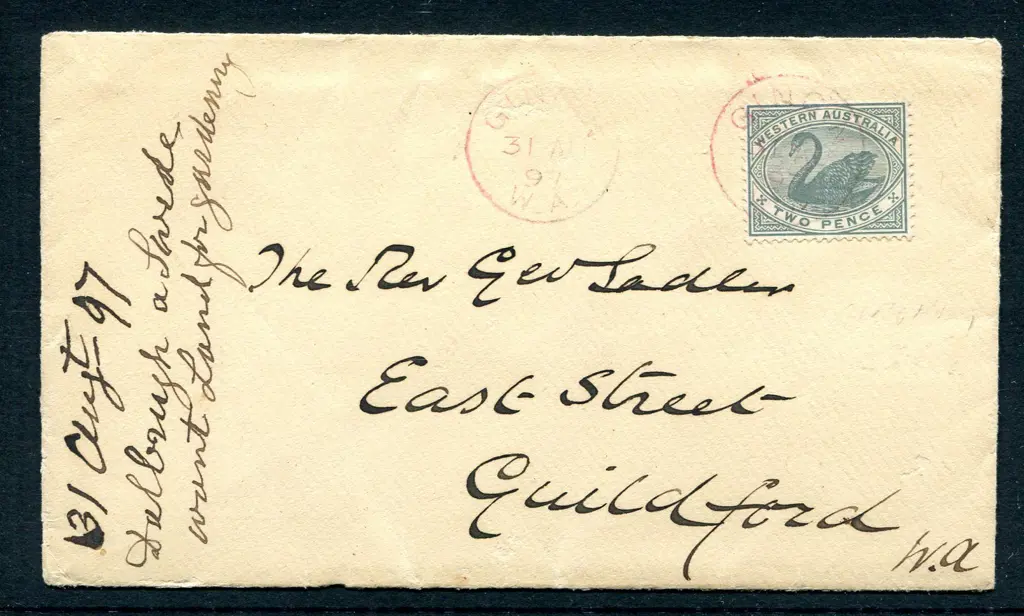 GIN
31 AU
97
W.A.
GINGIN
WESTERN AUSTRALIA
TWO PENCE
The Rev Geo Sadler
East Street
Guildford
W.A
31 Augt 97
Dalbrugh a Swede
want Land for gardening